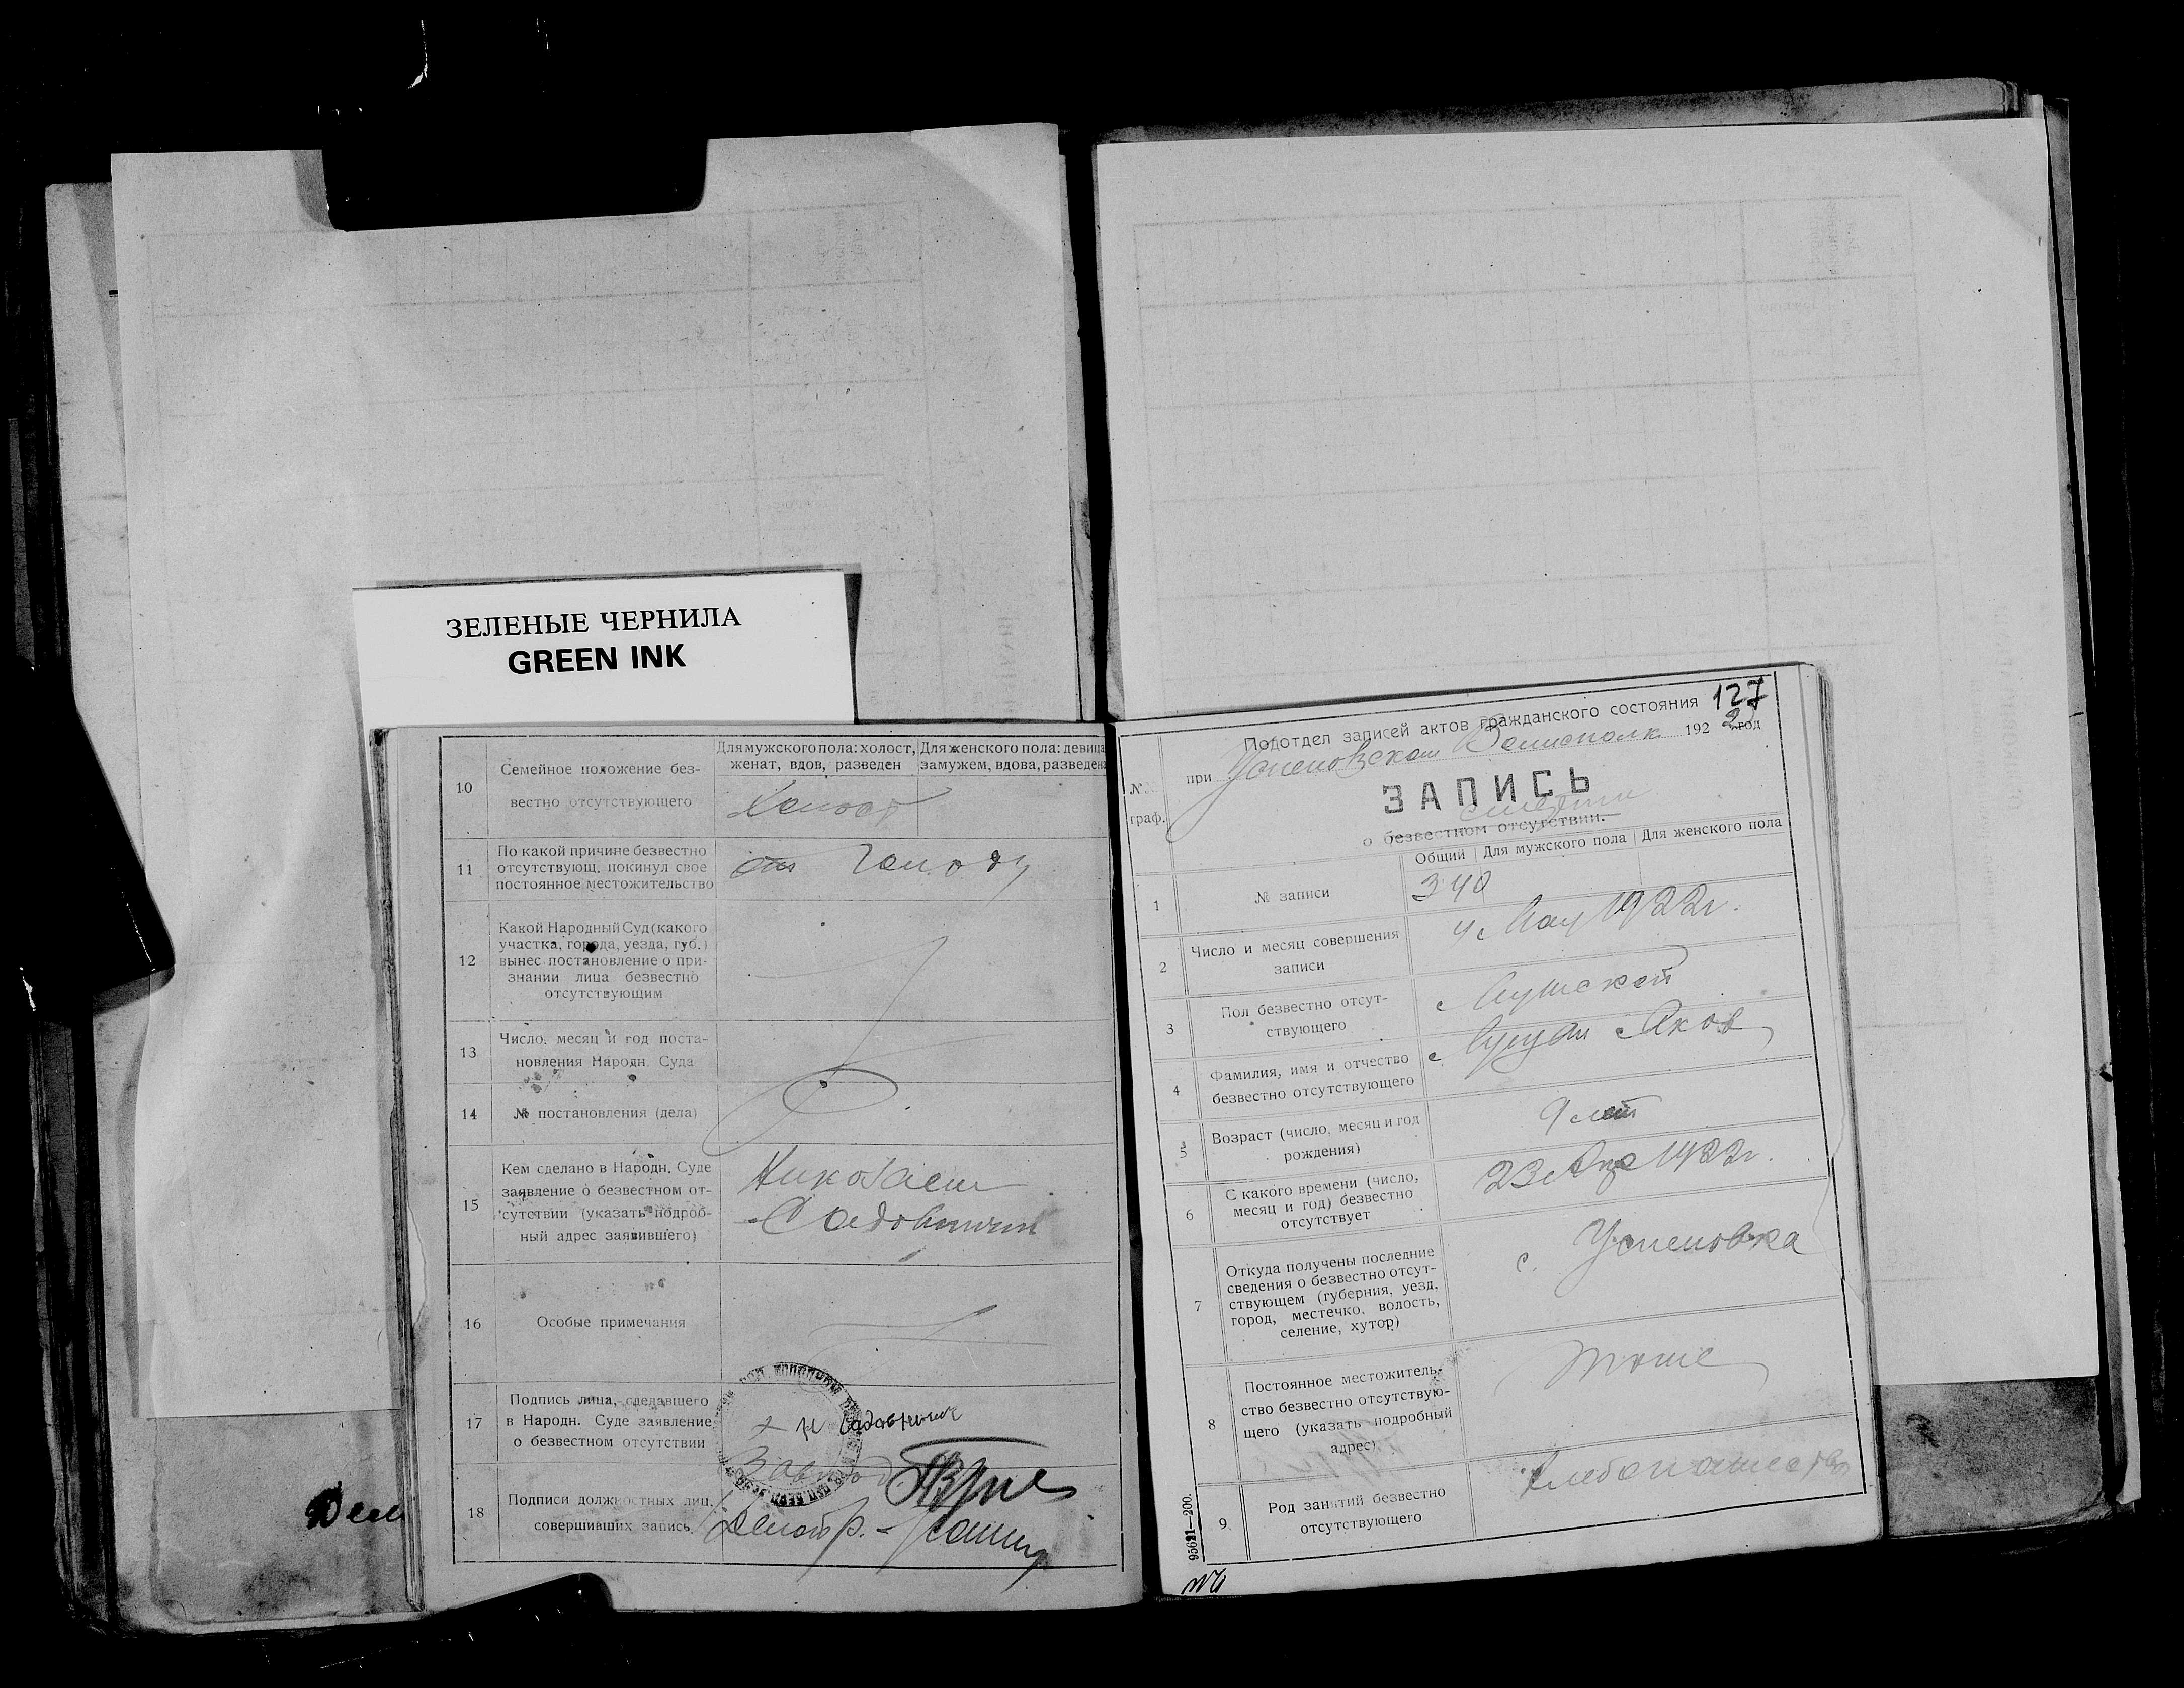 ЗЕЛЕНЫЕ ЧЕРНИЛА
GREEN INK
Для мужского пола: холост, женат, вдов, разведен
Для женского пола: девица замужем, вдова, разведена
10
Семейное положение без-
вестно отсутствующего
Холост
11
По какой причине безвестно
отсутствующ. покинул свое
постоянное местожительство
от голоду
12
Какой Народный Суд (какого
участка, города, уезда, губ.)
вынес постановление о при-
знании лица безвестно
отсутствующим
13
Число, месяц и год поста-
новления Народн. Суда
14
№ постановления (дела)
15
Кем сделано в Народн. Суде
заявление о безвестном от-
сутствии (указать подроб-
ный адрес заявившего)
Николаем
16
Особые примечания
17
Подпись лица, сделавшего
в Народн. Суде заявление
о безвестном отсутствии
18
Подписи должностных лиц,
совершивших запись.
Дем
127
Подотдел записей актов гражданского состояния
при Успеновском Волисполк 1922 год
№№
граф.
ЗАПИСЬ
смерти
о безвестном отсутствии.
Общий
Для мужского пола
Для женского пола
1
№ записи
340
2
Число и месяц совершения
записи
4 Мая 1922 г.
3
Пол безвестно отсут-
ствующего
Мужской
4
Фамилия, имя и отчество
безвестно отсутствующего
Яков
5
Возраст (число, месяц и год
рождения)
9 лет
6
С какого времени (число,
месяц и год) безвестно
отсутствует
23 Апр 1922 г.
7
Откуда получены последние
сведения о безвестно отсут-
ствующем (губерния, уезд,
город, местечко, волость,
селение, хутор)
с. Успеновка
8
Постоянное местожитель-
ство безвестно отсутствую-
щего (указать подробный
адрес)
тоже
9.
Род занятий безвестно
отсутствующего
Хлебопашество
95621—200.